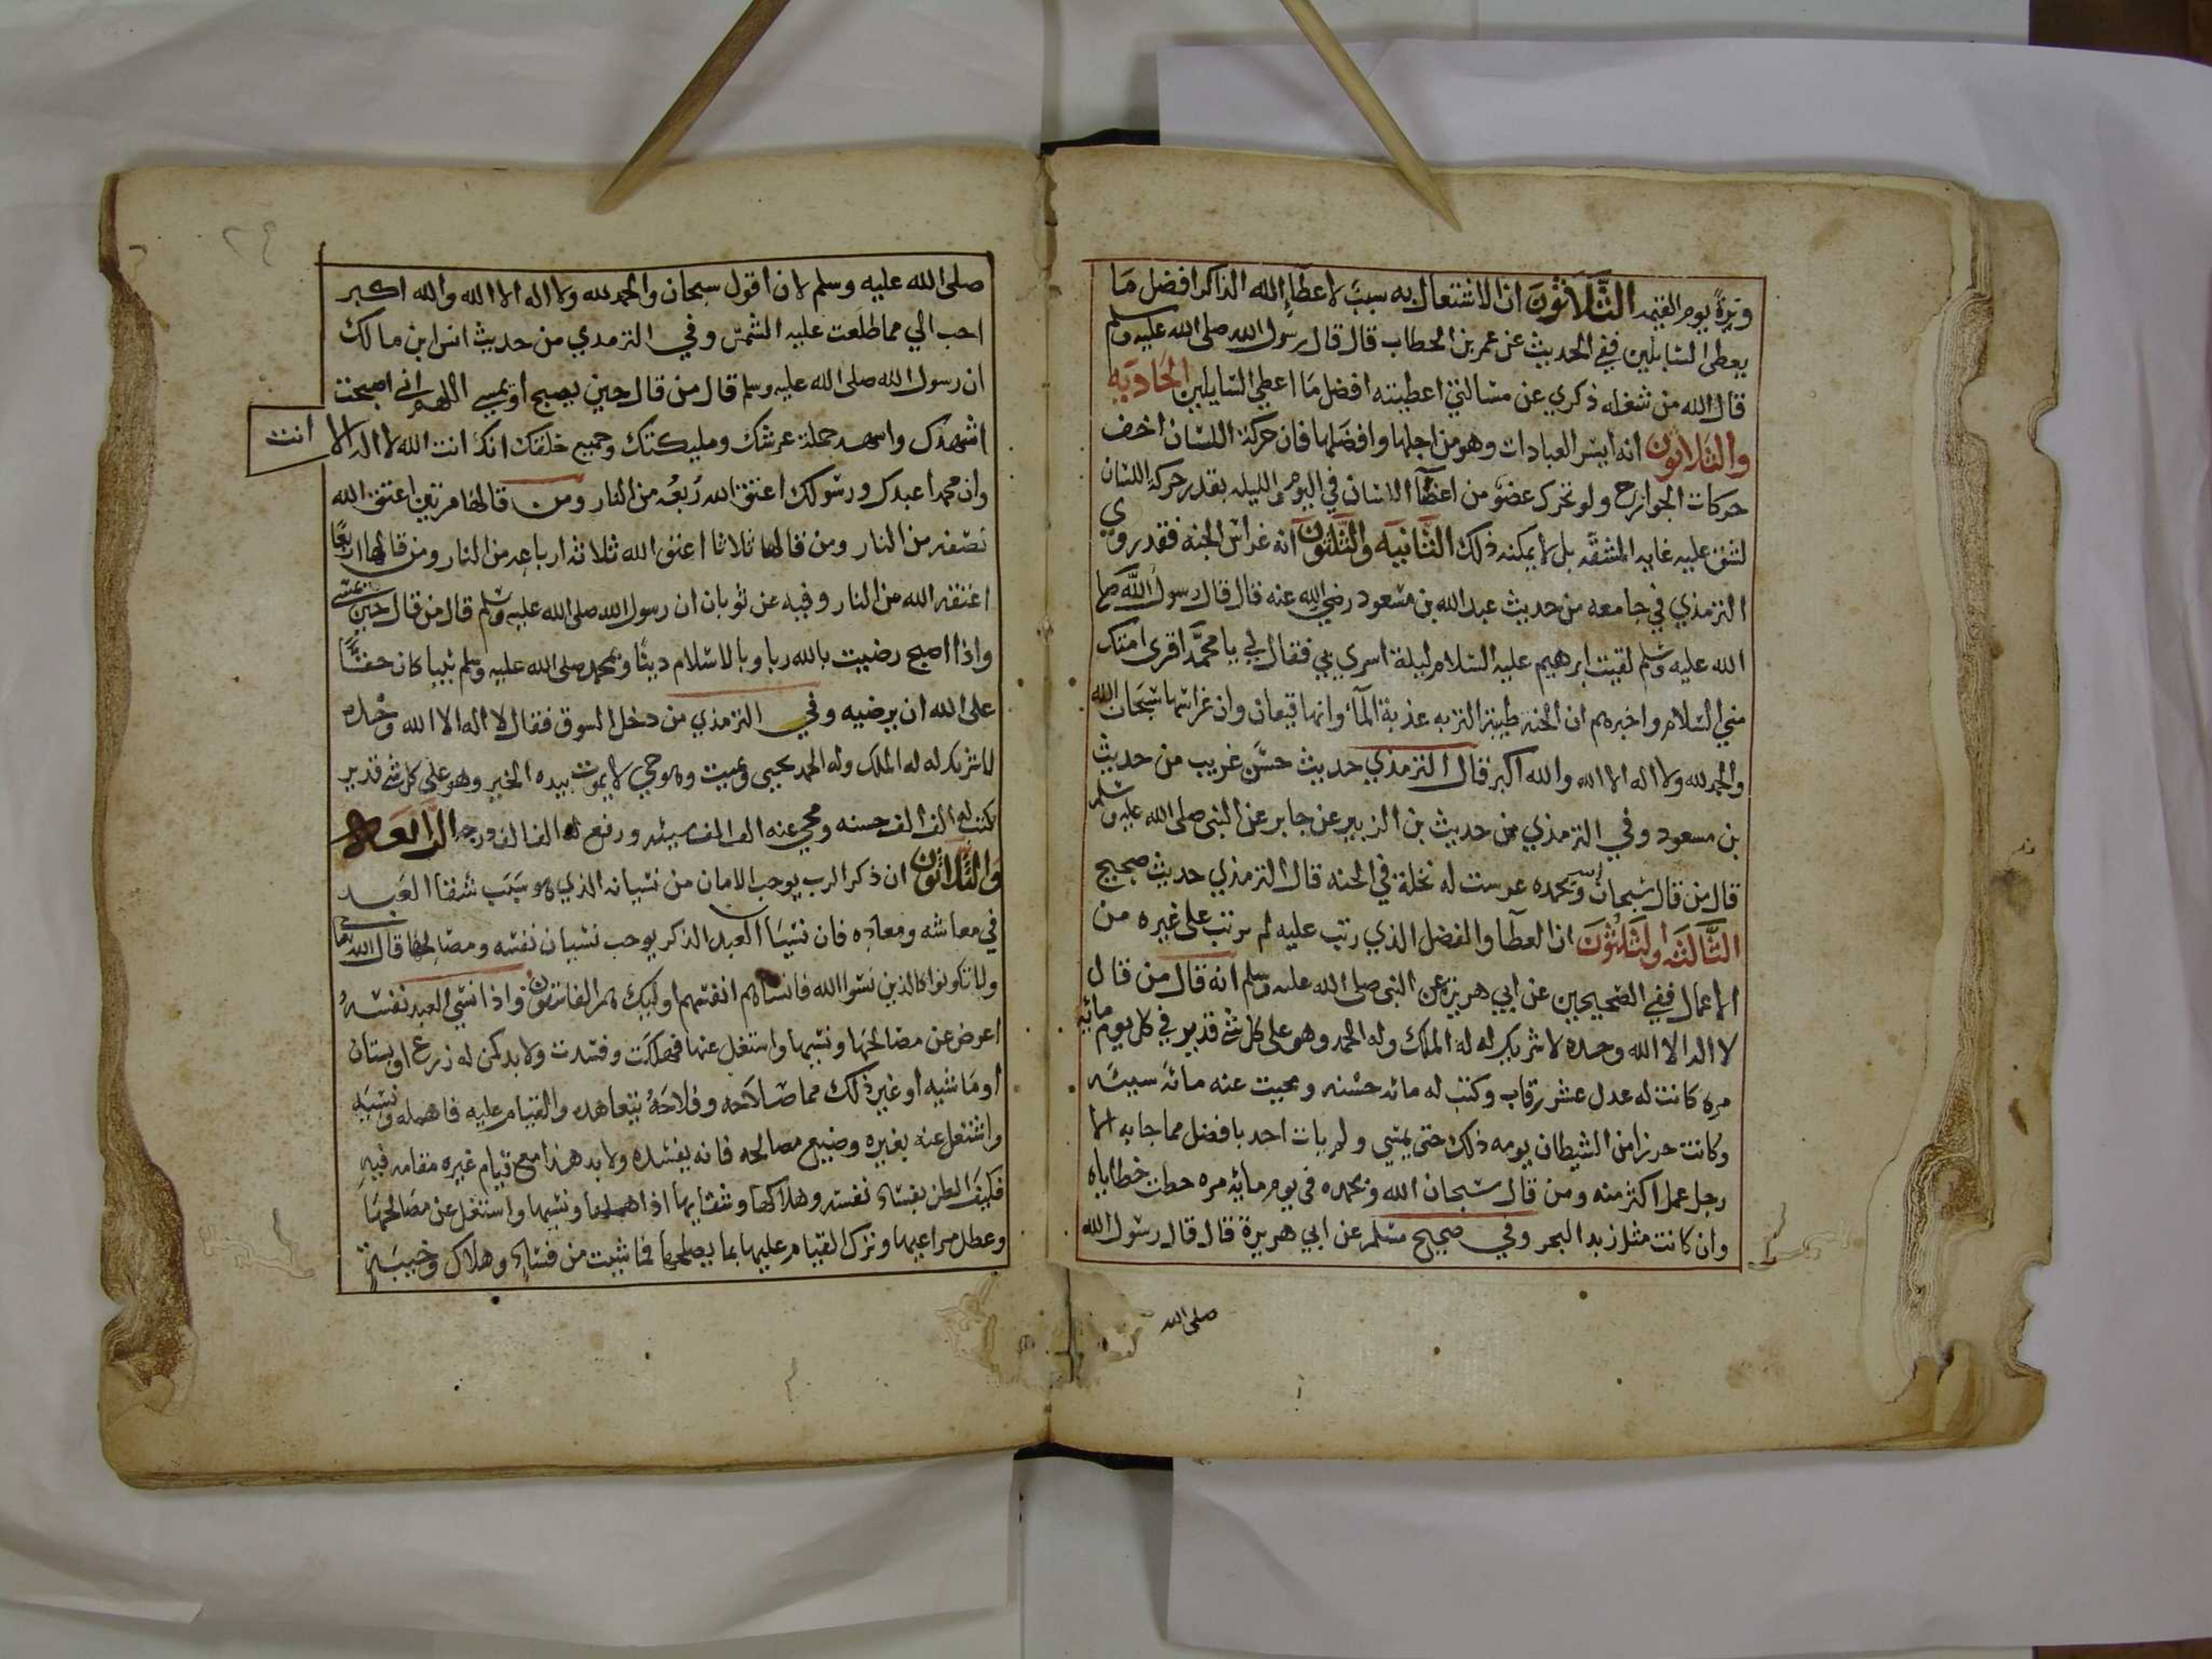 وترة يوم القيمه الثلاثون ان الاشتغال به سبب لاعطاء الله الذاكر افضل ما
يعطي السايلين ففي الحديث عن عمر بن الخطاب قال قال رسول الله صلى الله عليه وسلم
قال الله من شغله ذكري عن مسالتي اعطيته افضل ما اعطي السايلين الحاديه
والثلاثون انه ايسر العبادات وهو من اجلها وافضلها فان حركة اللسان اخف
حركات الجوارح ولو تحرك عضو من اعضآ الانسان في اليوم والليله بقدر حركة اللسان
لشق عليه غايه المشقه بل لا يمكنه ذلك الثانيه والثلثون انه غراس الجنة فقد روي
الترمذي في جامعه من حديث عبد الله بن مسعود رضي الله عنه قال قال رسول الله صلى
الله عليه وسلم لقيت ابرهيم عليه السلام ليلة اسري بي فقال لي يا محمد اقرى امتك
مني السلام واخبرهم ان الجنه طيبة التربه عذبة المآء وانها قيعان وان غراسها سبحان الله
والحمد لله ولا اله الا الله والله اكبر قال الترمذي حديث حسن غريب من حديث
بن مسعود وفي الترمذي من حديث بن الزبير عن جابر عن النبي صلى الله عليه وسلم
قال من قال سبحان الله وبحمده غرست له نخلة في الجنه قال الترمذي حديث صحيح
الثالثه والثلثون ان العطآ والفضل الذي رتب عليه لم يرتب على غيره من
الاعمال ففي الصحيحين عن ابي هريرة عن النبي صلى الله عليه وسلم انه قال من قال
لا اله الا الله وحده لا شريك له له الملك وله الحمد وهو على كل شي قدير في كل يوم مائيه
مره كانت له عدل عشر رقاب وكتب له مائه حسنه ومحيت عنه مائة سيئه
وكانت حرزا من الشيطان يومه ذلك حتى يمسي ولم يات احد بافضل مما جا به الا
رجل عمل اكثر منه ومن قال سبحان الله وبحمده في يوم مائة مره حطت خطاياه
وان كانت مثل زبد البحر وفي صحيح مسلم عن ابي هريرة قال قال رسول الله
صلى الله
صلى الله عليه وسلم لان اقول سبحان والحمد لله ولا اله الا الله والله اكبر
احب الي مما طلعت عليه الشمس وفي الترمذي من حديث انس ابن مالك
ان رسول الله صلى الله عليه وسلم قال من قال حين يصبح او يمسي اللهم اني اصبحت
اشهدك واشهد حملة عرشك ومليكتك وجميع خلقك انك انت الله لا اله الا انت
وان محمدا عبدك ورسولك اعتق الله ربعه من النار ومن قالها مرتين اعتق الله
نصفه من النار ومن قالها ثلاثا اعتق الله ثلاثة ارباعه من النار ومن قالها اربعا
اعتقه الله من النار وفيه عن ثوبان ان رسول الله صلى الله عليه وسلم قال من قال حين يمسي
واذا اصبح رضيت بالله ربا وبالاسلام دينا وبمحمد صلى الله عليه وسلم نبيا كان حقا
على الله ان يرضيه وفي الترمذي من دخل السوق فقال لا اله الا الله وحده
لا شريك له له الملك وله الحمد يحيى ويميت وهو حي لا يموت بيده الخير وهو على كل شي قدير
كتب له الف الف حسنه ومحي عنه الف الف سيئه ورفع له الف الف درجه الرابعه
والثلاثون ان ذكر الرب يوجب الامان من نسيانه الذي هو سبب شقا العبد
في معاشه ومعاده فان نسيا العبد الذكر يوجب نسيان نفسه ومصالحها قال الله تعالى
ولا تكونوا كالذين نسوا الله فانساهم انفسهم اوليك هم الفاسقون واذا نسي العبد نفسه
اعرض عن مصالحها ونسيها واشتغل عنها فهلكت وفسدت ولا بد كمن له زرع او بستان
او ماشيه او غير ذلك مما صلاحه وفلاحه بتعاهده والقيام عليه فاهمله ونسيه
واشتغل عنه بغيره وضيع مصالحه فانه يفسد ولا بد هذا مع قيام غيره مقامه فيه
فكيف الظن بفساد نفسه وهلاكها وشقايها اذا اهملها ونسيها واشتغل عن مصالحها
وعطل مراعيها وترك القيام عليها بما يصلحها فما شيت من فساد وهلاك وخيبة